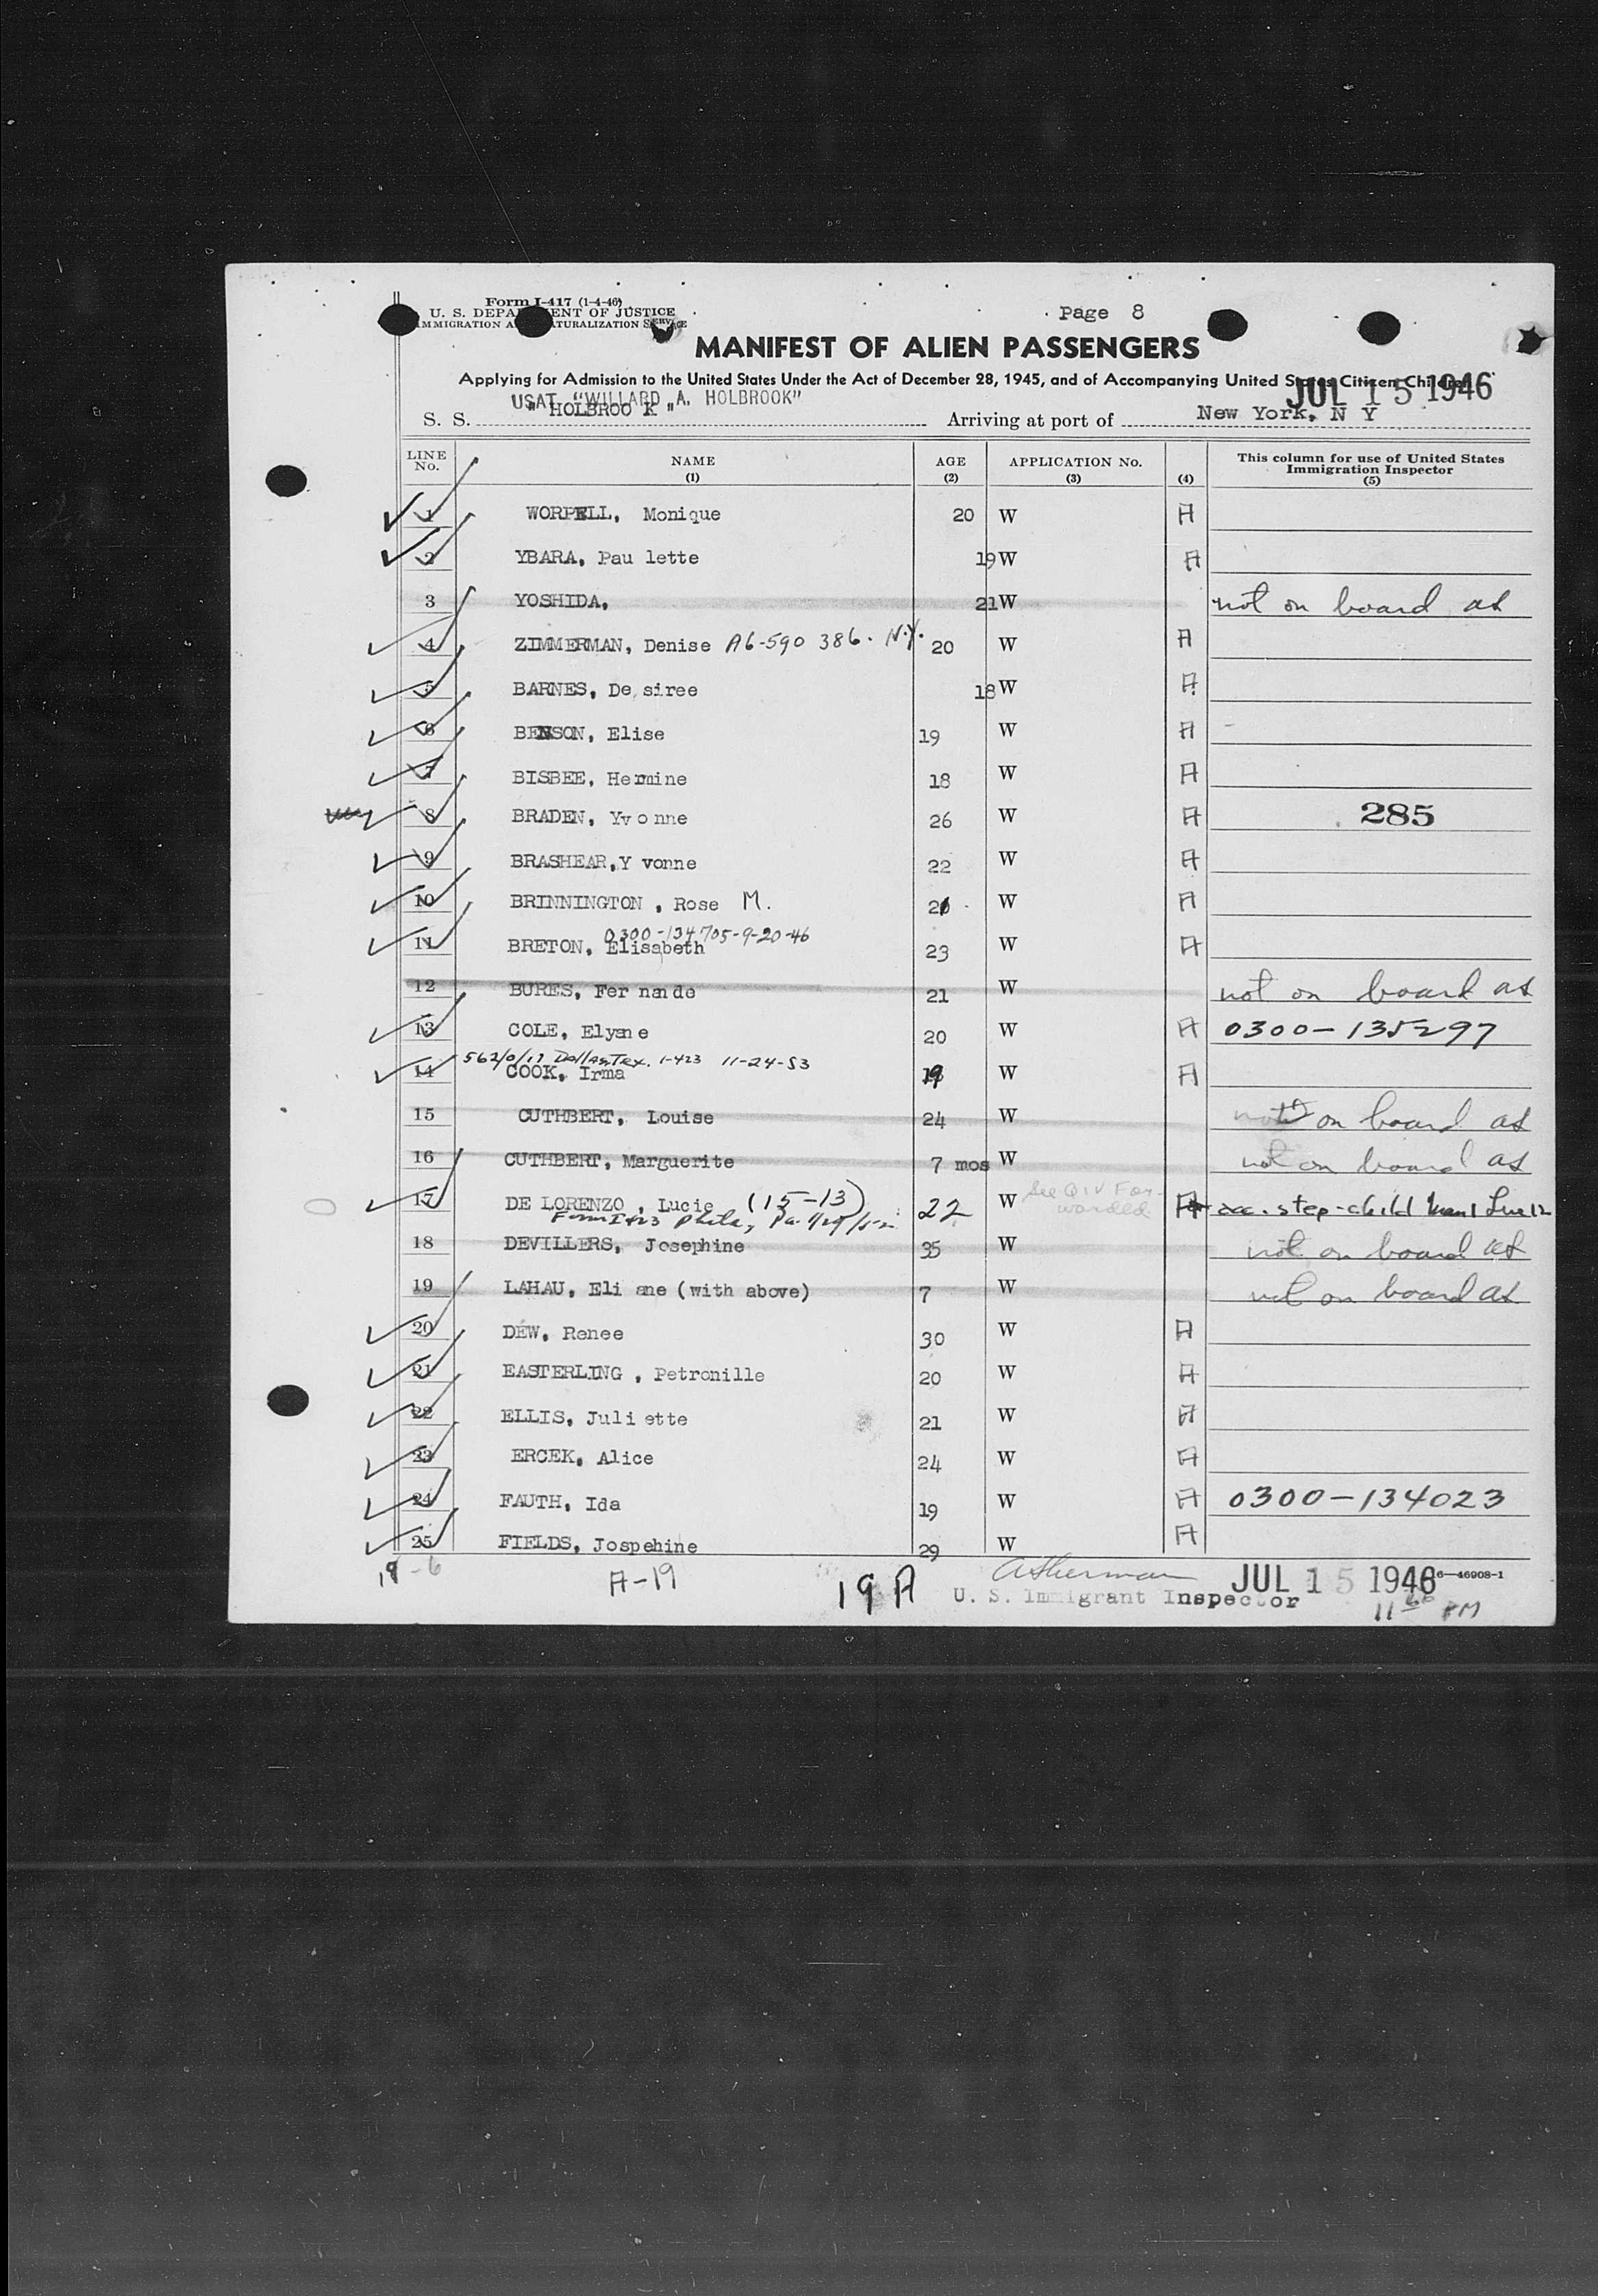 Form I-417 (1-4-46)
Page 8
U. S. DEPA ENT OF JUSTICE
IMMIGRATION A ATURALIZATION SERVICE
MANIFEST OF ALIEN PASSENGERS
Applying for Admission to the United States Under the Act of December 28, 1945, and of Accompanying United States Citizen Children
JUL 15 1946
USAT "WILLARD A. HOLBROOK"
S. S. " HOLBROO K " Arriving at port of New York, N Y
LINE No. NAME (1) AGE (2) APPLICATION No. (3) (4) This column for use of United States Immigration Inspector (5)
1 WORPELL, Monique 20 W A
2 YBARA, Pau lette 19 W A
3 YOSHIDA, 21 W not on board as
4 ZIMMERMAN, Denise A6-590 386. N.Y. 20 W A
5 BARNES, De siree 18 W A
6 BENSON, Elise 19 W A
7 BISBEE, Hermine 18 W A
8 BRADEN, Yv o nne 26 W A 285
9 BRASHEAR,Y vonne 22 W A
10 BRINNINGTON , Rose M. 21 W A
0300-134705-9-20-46
11 BRETON, Elisabeth 23 W A
12 BURES, Fer nande 21 W not on board as
13 COLE, Elyane 20 W A 0300-135297
562/0/17 Dallas, Tex. 1-423 11-24-53
14 COOK, Irma 19 W A
15 CUTHBERT, Louise 24 W not on board as
16 CUTHBERT, Marguerite 7 mos W not on board as
17 DE LORENZO , Lucie (15-13) 22 W See QIV Forwarded A acc. step-child Line 12
Phila, Pa.
18 DEVILLERS, Josephine 35 W not on board as
19 LAHAU, Eli ane (with above) 7 W not on board as
20 DEW, Renee 30 W A
21 EASTERLING , Petronille 20 W A
22 ELLIS, Juli ette 21 W A
23 ERCEK, Alice 24 W A
24 FAUTH, Ida 19 W A 0300-134023
25 FIELDS, Jospehine 29 W A
19 - 6 A-19 19 A ASherman JUL 15 1946 6—46908-1
U. S. Immigrant Inspector PM